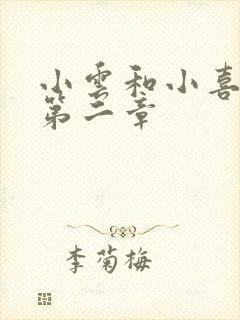 小雲和小喜
第二章
李菊梅